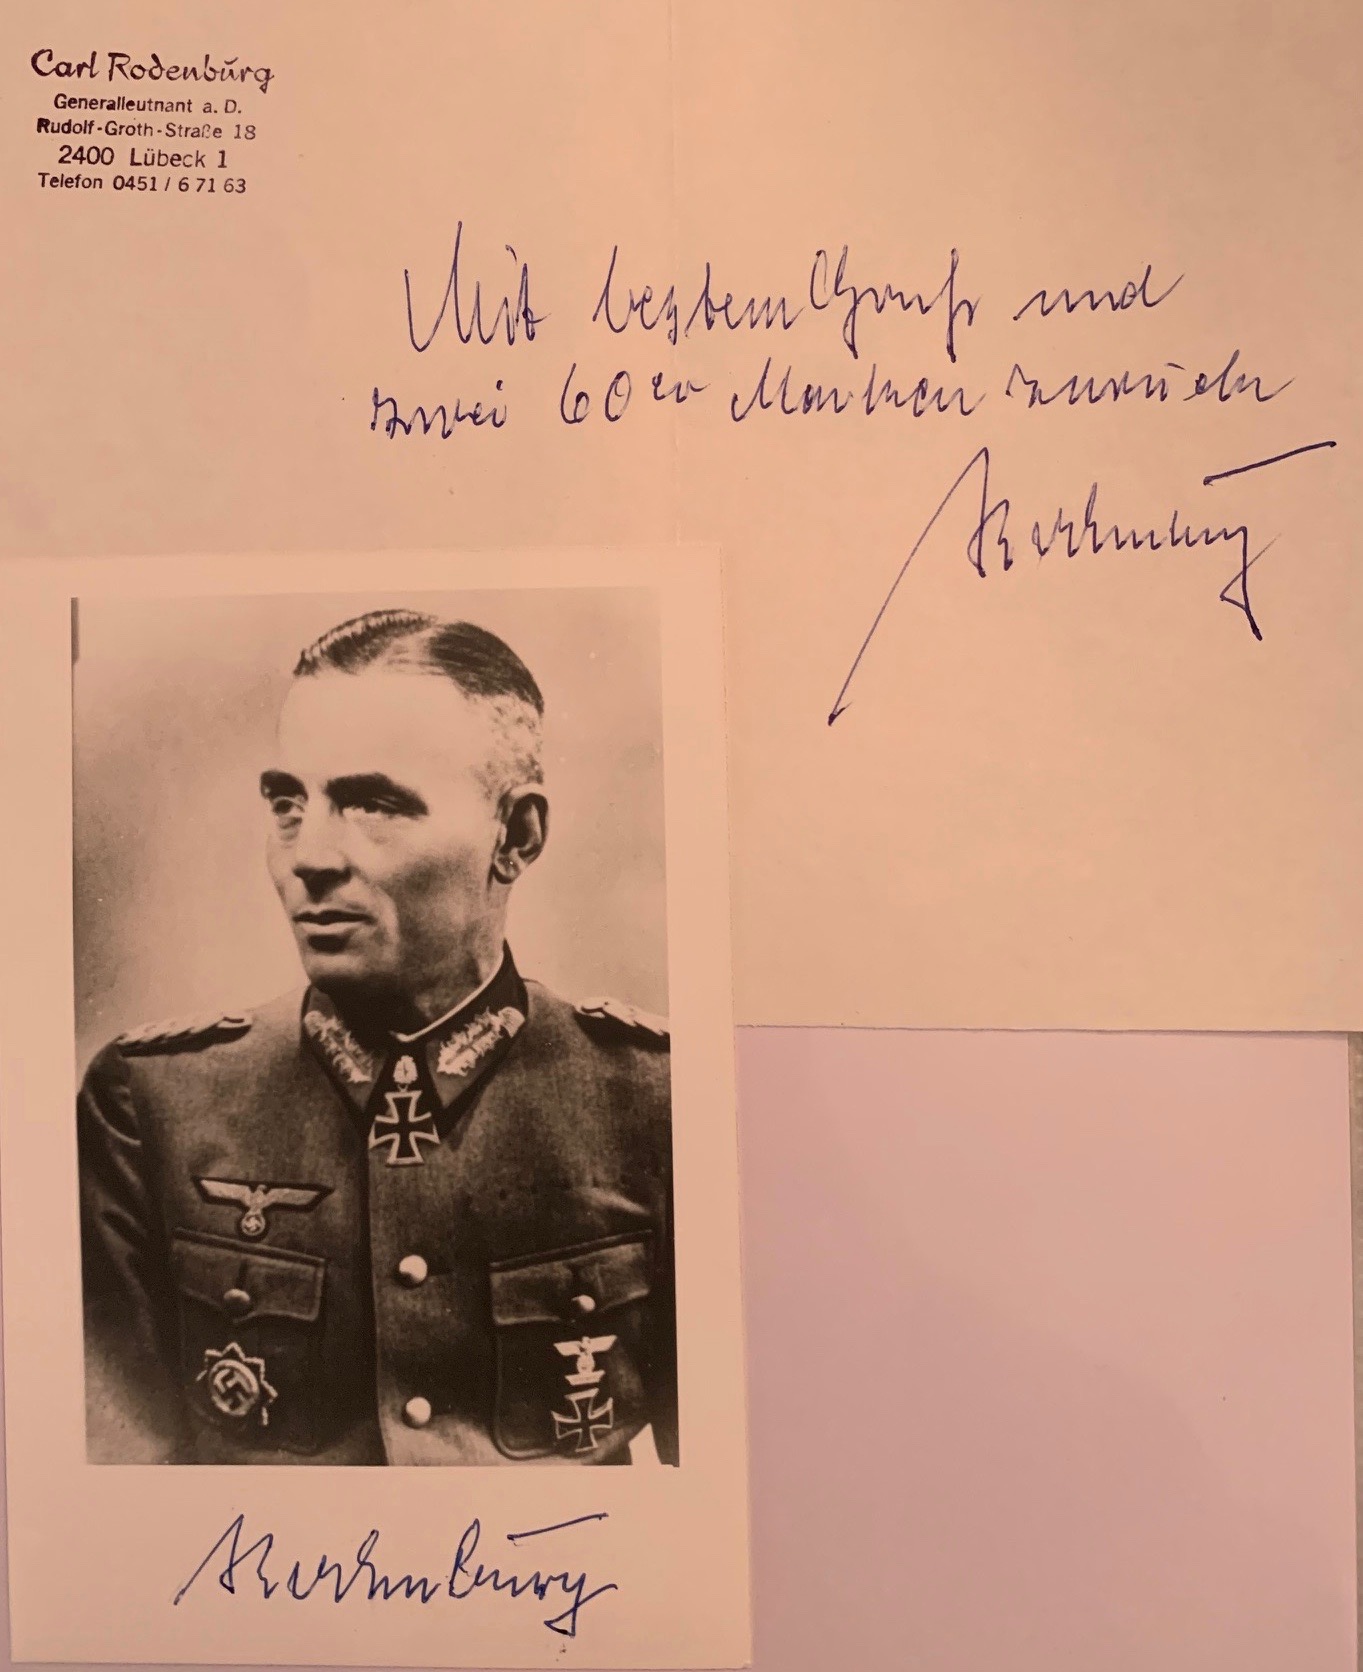 Carl Rodenbŭrg
Generalleutnant a. D.
Rudolf-Groth-Straße 18
2400 Lübeck 1
Telefon 0451 / 6 71 63
Mit bestem Gruß und
zwei 60er Marken zurück
Rodenburg
Rodenburg